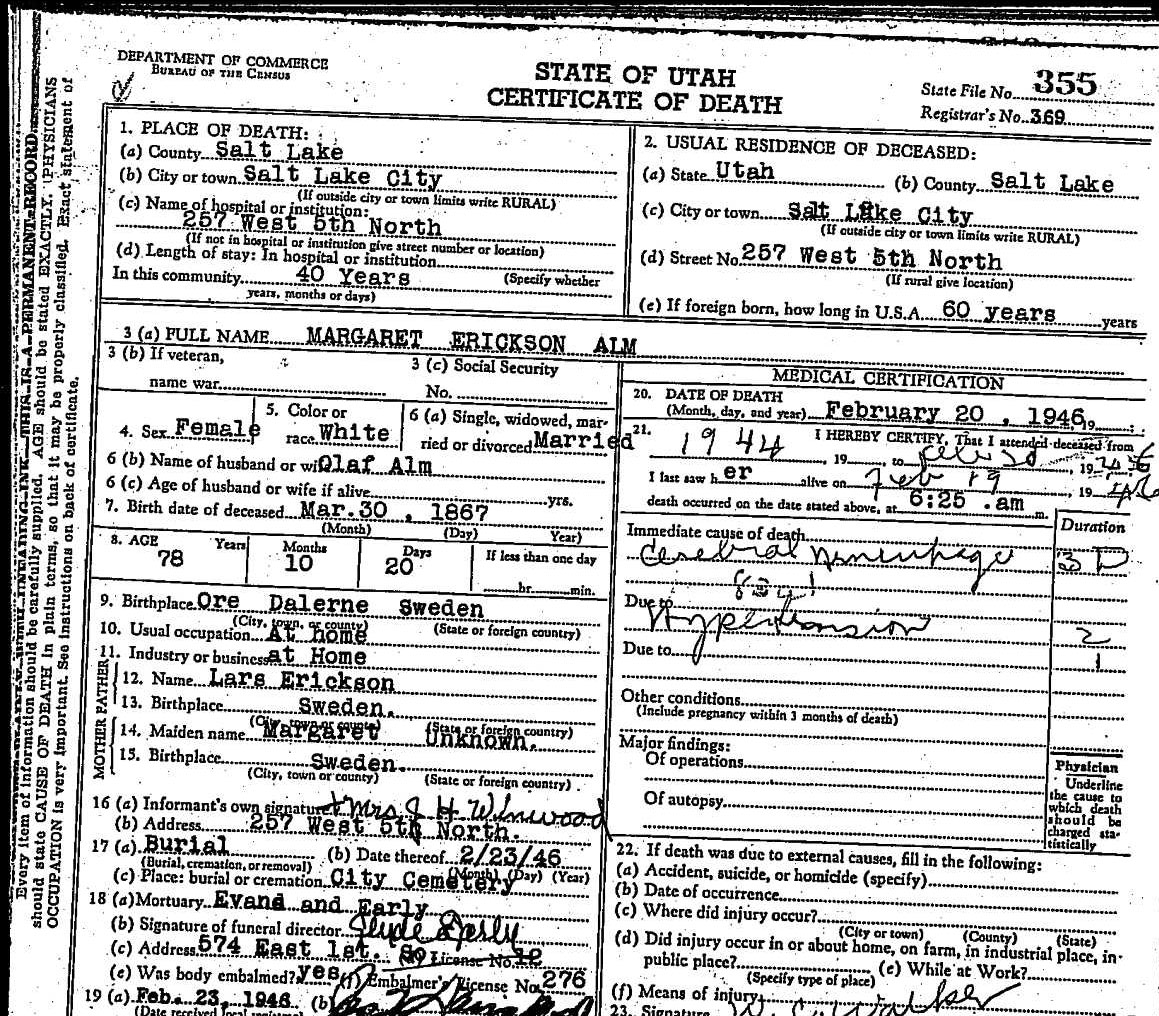 Every item of information should be carefully supplied. AGE should be stated EXACTLY. PHYSICIANS
should state CAUSE OF DEATH in plain terms, so that it may be properly classified. Exact statement of
OCCUPATION is very important. See instructions on back of certificate.
DEPARTMENT OF COMMERCE
BUREAU OF THE CENSUS
STATE OF UTAH
CERTIFICATE OF DEATH
State File No. 355
Registrar's No. 369
1. PLACE OF DEATH:
(a) County Salt Lake
(b) City or town Salt Lake City
(If outside city or town limits write RURAL)
(c) Name of hospital or institution:
257 West 5th North
(If not in hospital or institution give street number or location)
(d) Length of stay: In hospital or institution
In this community 40 Years (Specify whether
years, months or days)
2. USUAL RESIDENCE OF DECEASED:
(a) State Utah (b) County Salt Lake
(c) City or town Salt Lake City
(If outside city or town limits write RURAL)
(d) Street No. 257 West 5th North
(If rural give location)
(e) If foreign born, how long in U.S.A. 60 years years
3 (a) FULL NAME MARGARET ERICKSON ALM
3 (b) If veteran,
name war
3 (c) Social Security
No.
4. Sex Female
5. Color or
race White
6 (a) Single, widowed, mar-
ried or divorced Married
6 (b) Name of husband or wi Olaf Alm
6 (c) Age of husband or wife if alive yrs.
7. Birth date of deceased Mar.30 , 1867
(Month) (Day) Year)
8. AGE Years Months Days If less than one day
78 10 20 hr. min.
9. Birthplace Ore Dalerne Sweden
(City, town, or county) (State or foreign country)
10. Usual occupation At home
11. Industry or business at Home
FATHER
12. Name Lars Erickson
13. Birthplace Sweden.
(City, town or county) (State or foreign country)
MOTHER
14. Maiden name Margaret Unknown.
15. Birthplace Sweden.
(City, town or county) (State or foreign country)
16 (a) Informant's own signature Mrs J H Winwood
(b) Address 257 West 5th North.
17 (a) Burial (b) Date thereof 2/23/46
(Burial, cremation, or removal) (Month) (Day) (Year)
(c) Place: burial or cremation City Cemetery
18 (a) Mortuary Evans and Early
(b) Signature of funeral director
(c) Address 574 East 1st. So License No. 12
(e) Was body embalmed? yes (f) Embalmer's License No. 276
19 (a) Feb. 23, 1946 (b)
MEDICAL CERTIFICATION
20. DATE OF DEATH
(Month, day, and year) February 20 , 1946 19
21. I HEREBY CERTIFY, That I attended deceased from
1944 , 19 to , 19 46
I last saw h er alive on Feb 19 , 19 46
death occurred on the date stated above, at 6:25 .am m.
Immediate cause of death Duration
Cerebral 3 D
Due to
Hypertension 2
Due to 1
Other conditions
(Include pregnancy within 3 months of death)
Major findings:
Of operations
Of autopsy
Physician
Underline
the cause to
which death
should be
charged sta-
tistically
22. If death was due to external causes, fill in the following:
(a) Accident, suicide, or homicide (specify)
(b) Date of occurrence
(c) Where did injury occur?
(City or town) (County) (State)
(d) Did injury occur in or about home, on farm, in industrial place, in
public place? (e) While at Work?
(Specify type of place)
(f) Means of injury
23. Signature